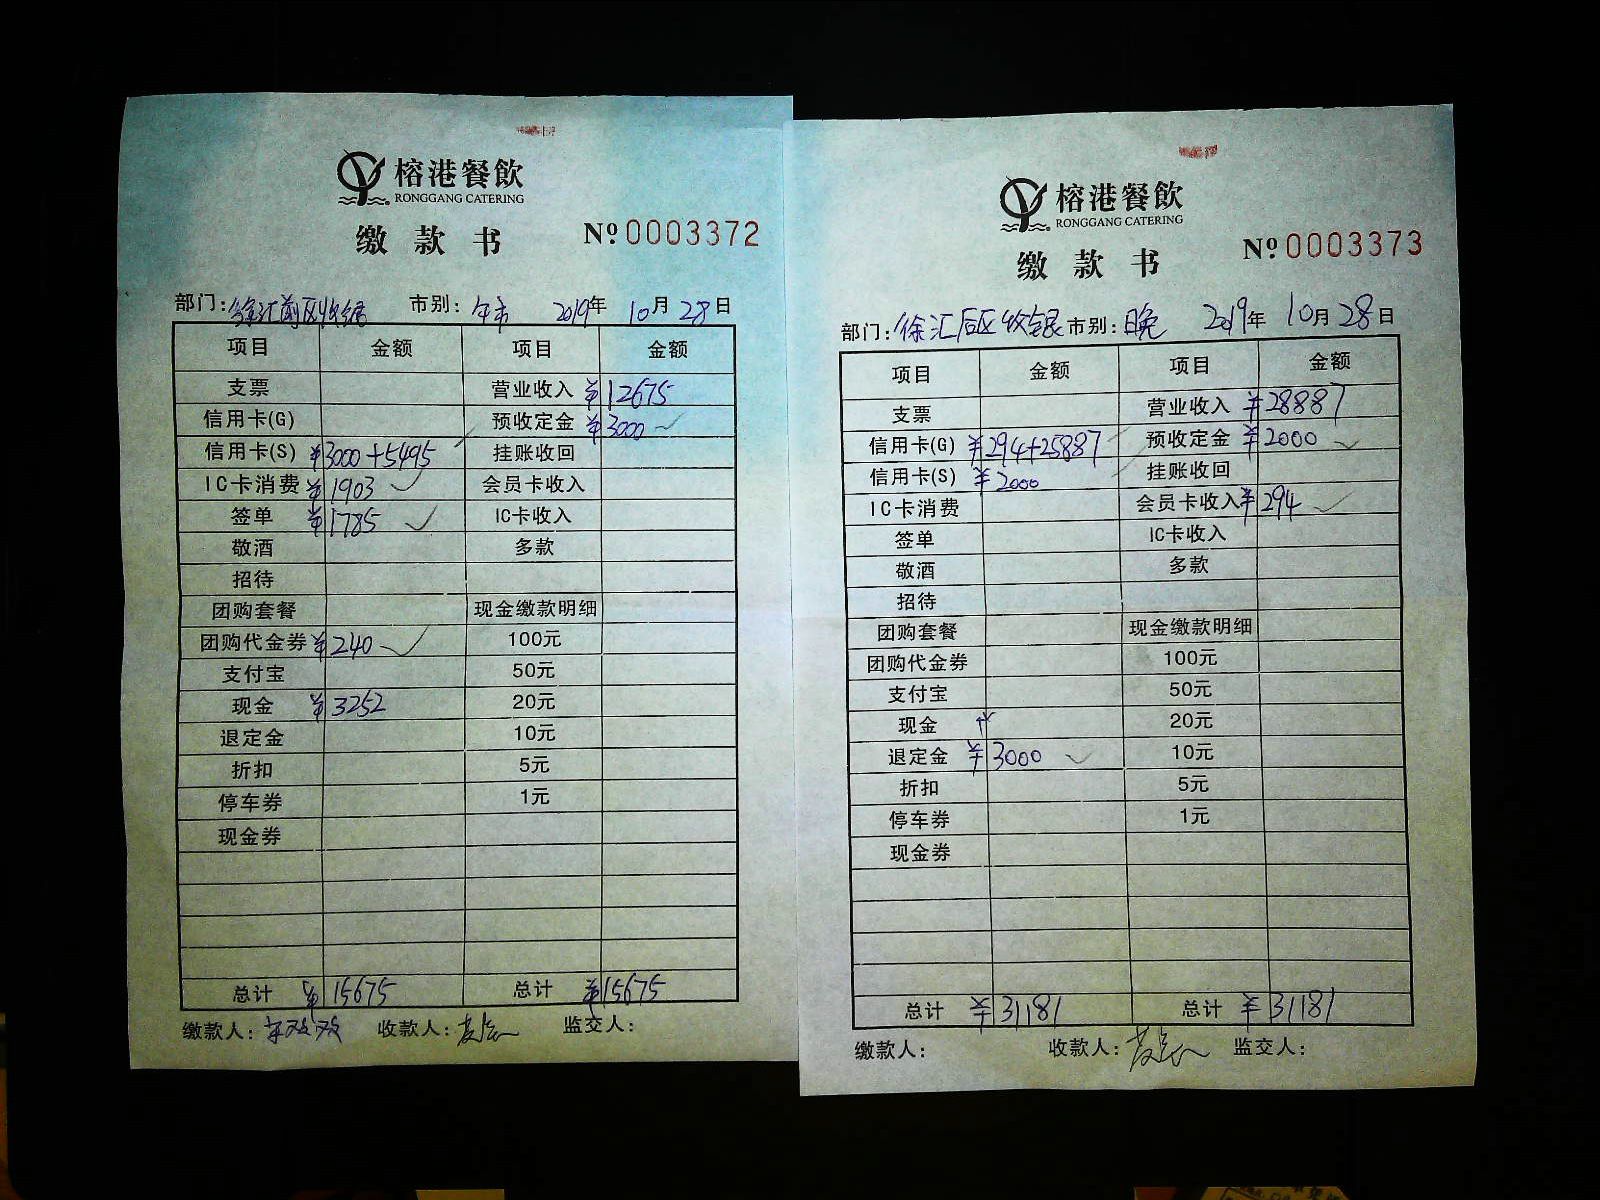 榕港餐飲
RONGGANG CATERING
缴款书
№ 0003372
部门: 徐汇前区收银 市别: 午市 2019年 10月 28日
项目 金额 项目 金额
支票 营业收入 ¥12675
信用卡(G) 预收定金 ¥3000
信用卡(S) ¥3000+5495 挂账收回
IC卡消费 ¥1903 会员卡收入
签单 ¥1785 IC卡收入
敬酒 多款
招待
团购套餐 现金缴款明细
团购代金券 ¥240 100元
支付宝 50元
现金 ¥3252 20元
退定金 10元
折扣 5元
停车券 1元
现金券
总计 ¥15675 总计 ¥15675
缴款人: 收款人: 监交人:
榕港餐飲
RONGGANG CATERING
缴款书
№ 0003373
部门: 徐汇后区收银 市别: 晚 2019年 10月 28日
项目 金额 项目 金额
支票 营业收入 ¥28887
信用卡(G) ¥294+25887 预收定金 ¥2000
信用卡(S) ¥2000 挂账收回
IC卡消费 会员卡收入 ¥294
签单 IC卡收入
敬酒 多款
招待
团购套餐 现金缴款明细
团购代金券 100元
支付宝 50元
现金 20元
退定金 ¥3000 10元
折扣 5元
停车券 1元
现金券
总计 ¥31181 总计 ¥31181
缴款人: 收款人: 监交人: